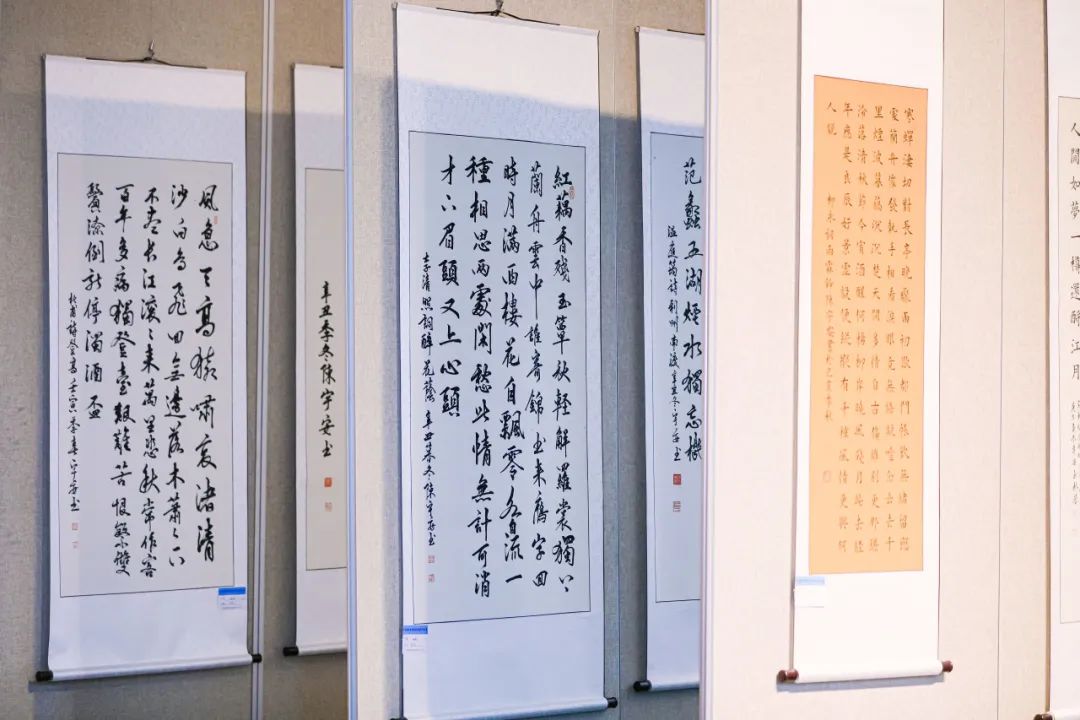 風急天高猿嘯哀渚清
沙白鳥飛回無邊落木蕭々下
不盡長江滾々來萬里悲秋常作客
百年多病獨登臺艱難苦恨繁雙
鬢潦倒新停濁酒盃
杜甫詩登高 壬寅季春宇安书
辛丑季冬陳宇安书
紅藕香殘玉簟秋輕解羅裳獨上
蘭舟雲中誰寄錦书來雁字回
時月滿西樓花自飄零水自流一
種相思兩處閑愁此情無計可消
才下眉頭又上心頭
李清照詞醉花蔭 辛丑暮冬陳宇安书
范蠡五湖煙水獨忘機
溫庭筠詩利州南渡辛丑冬宇安书
寒蟬淒切對長亭晚驟雨初歇都門帳飲無緒留戀
處蘭舟催發執手相看淚眼竟無語凝噎念去去千
里煙波暮靄沉沉楚天闊多情自古傷離別更那堪
冷落清秋節今宵酒醒何處楊柳岸曉風殘月此去經
年應是良辰好景虛設便縱有千種風情更與何
人說
柳永詞雨霖鈴陳宇安
人間如夢一樽還酹江月